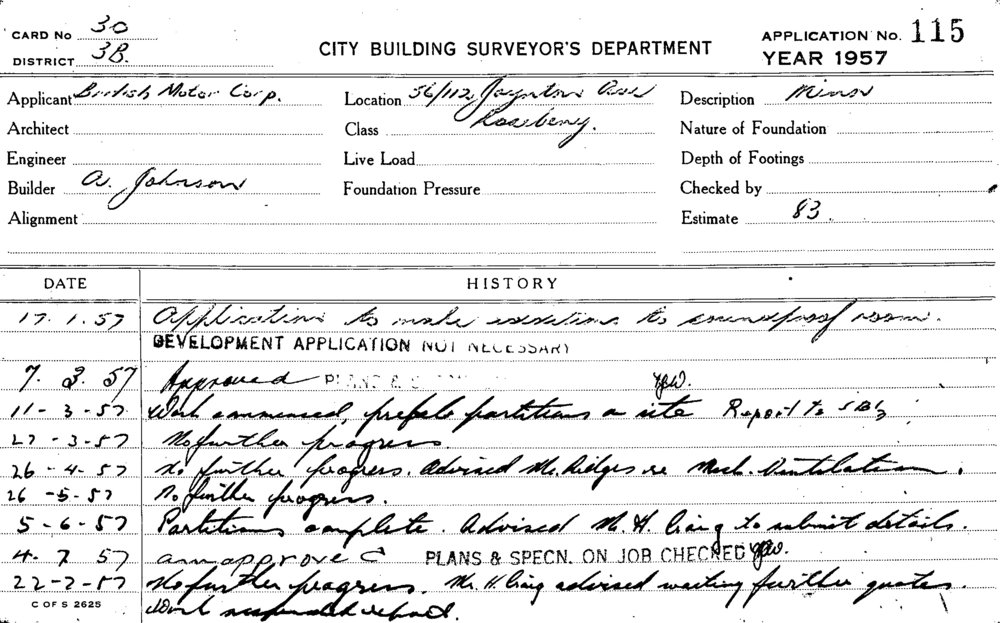 CARD No 30
DISTRICT 3B.
CITY BUILDING SURVEYOR'S DEPARTMENT
APPLICATION No. 115
YEAR 1957
Applicant British Motor Corp.
Location 56/112 Joynton Ave
Rosebery.
Description Minor
Architect
Class
Nature of Foundation
Engineer
Live Load
Depth of Footings
Builder A. Johnson
Foundation Pressure
Checked by
Alignment
Estimate 83.
DATE HISTORY
17.1.57 Application to make to soundproof room.
DEVELOPMENT APPLICATION NOT NECESSARY
7.3.57 Approved PLANS &
11-3-57 Work commenced, prefab partitions on site Report to
27-3-57 No further progress.
26-4-57 No further progress. Advised Mr. Ridges re Mech. Ventilation.
26-5-57 No further progress.
5-6-57 Partitions complete. Advised Mr. H. to submit details.
4-7 57 PLANS & SPECN. ON JOB CHECKED
22-7-57 No further progress. Mr. H. advised waiting further quotes.
Work suspended report.
C OF S 2625